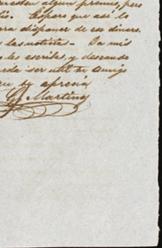 algun premio, pero
Espero que así lo
para disponer de ese dinero.
las noticias - Da mis
les escribes, y deseando
pueda ser util tu amigo
que te aprecia
Martinez